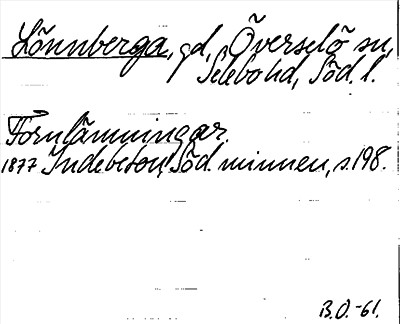 Lönnberga, gd, Överselö sn,
Selebo hd, Söd. l.
Fornlämningar.
1877 Indebetou, Söd. minnen, s. 198.
B.O. -61.